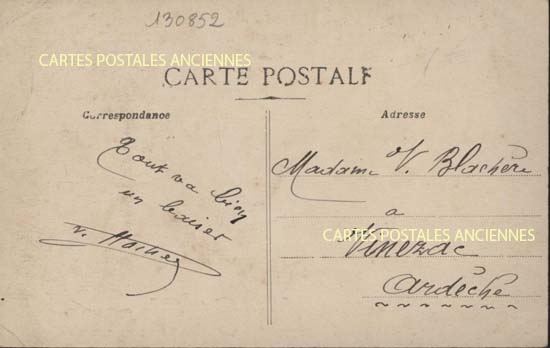 130852
CARTES POSTALES ANCIENNES
CARTE POSTALE
Correspondance
Tout va bien
un baiser
V.
Adresse
Madame V. Blachère
a
CARTES POSTALES ANCIENNES
Vinezac
Ardèche